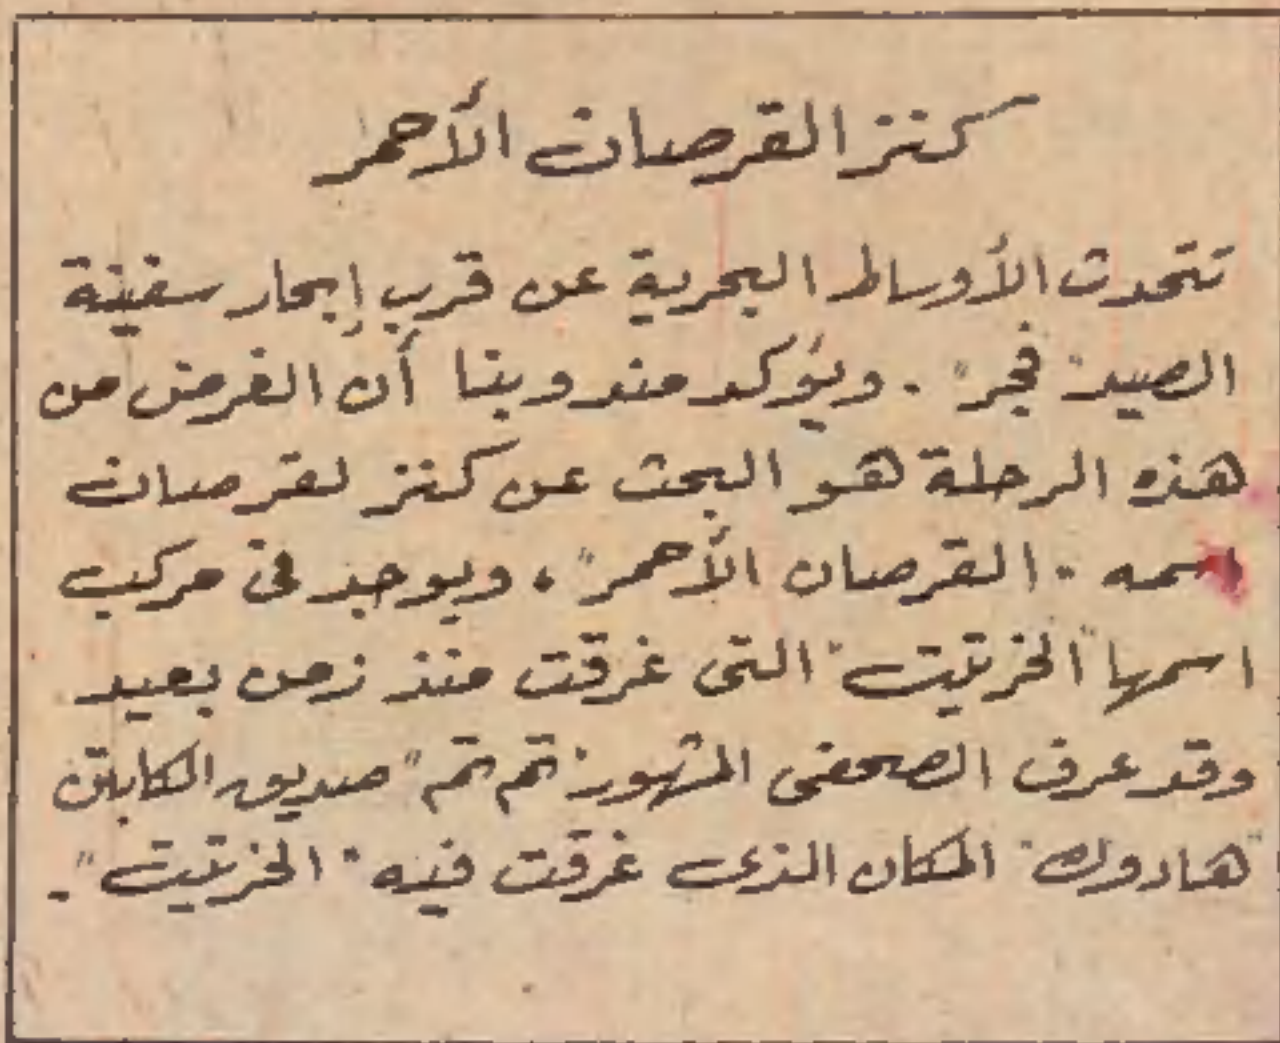 كنز القرصان الأحمر
تتحدث الأوساط البحرية عن قرب إبحار سفينة
الصيد "فجر". ويؤكد مندوبنا أن الغرض من
هذه الرحلة هو البحث عن كنز لقرصان
اسمه "القرصان الأحمر"، ويوجد فى مركب
اسمها "الخرتيت" التى غرقت منذ زمن بعيد
وقد عرف الصحفى المشهور "تم تم" صديق الكابتن
"هادوك" المكان الذى غرقت فيه "الخرتيت".